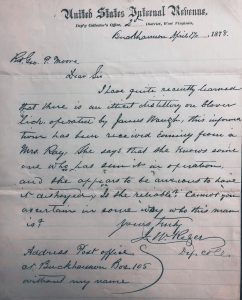 United States Internal Revenue.
Deputy Collector's Office, 2d District, West Virginia,
Buckhannon April 17th 1878.
Geo. P. Moore
Dear Sir
I have quite recently learned
that there is an illicit distillery on Clover
Lick operated by James Waugh, this informa
tion has been received coming from a
Mrs. Kay. She says that she knows some
one who has seen it in operation,
and she appears to be anxious to have
it destroyed. Is she reliable? Cannot you
ascertain in some way who this man
is?
Yours truly
J. W. Heger
Dep. Col.
Address Post office
at Buckhannon Box 105
without my name